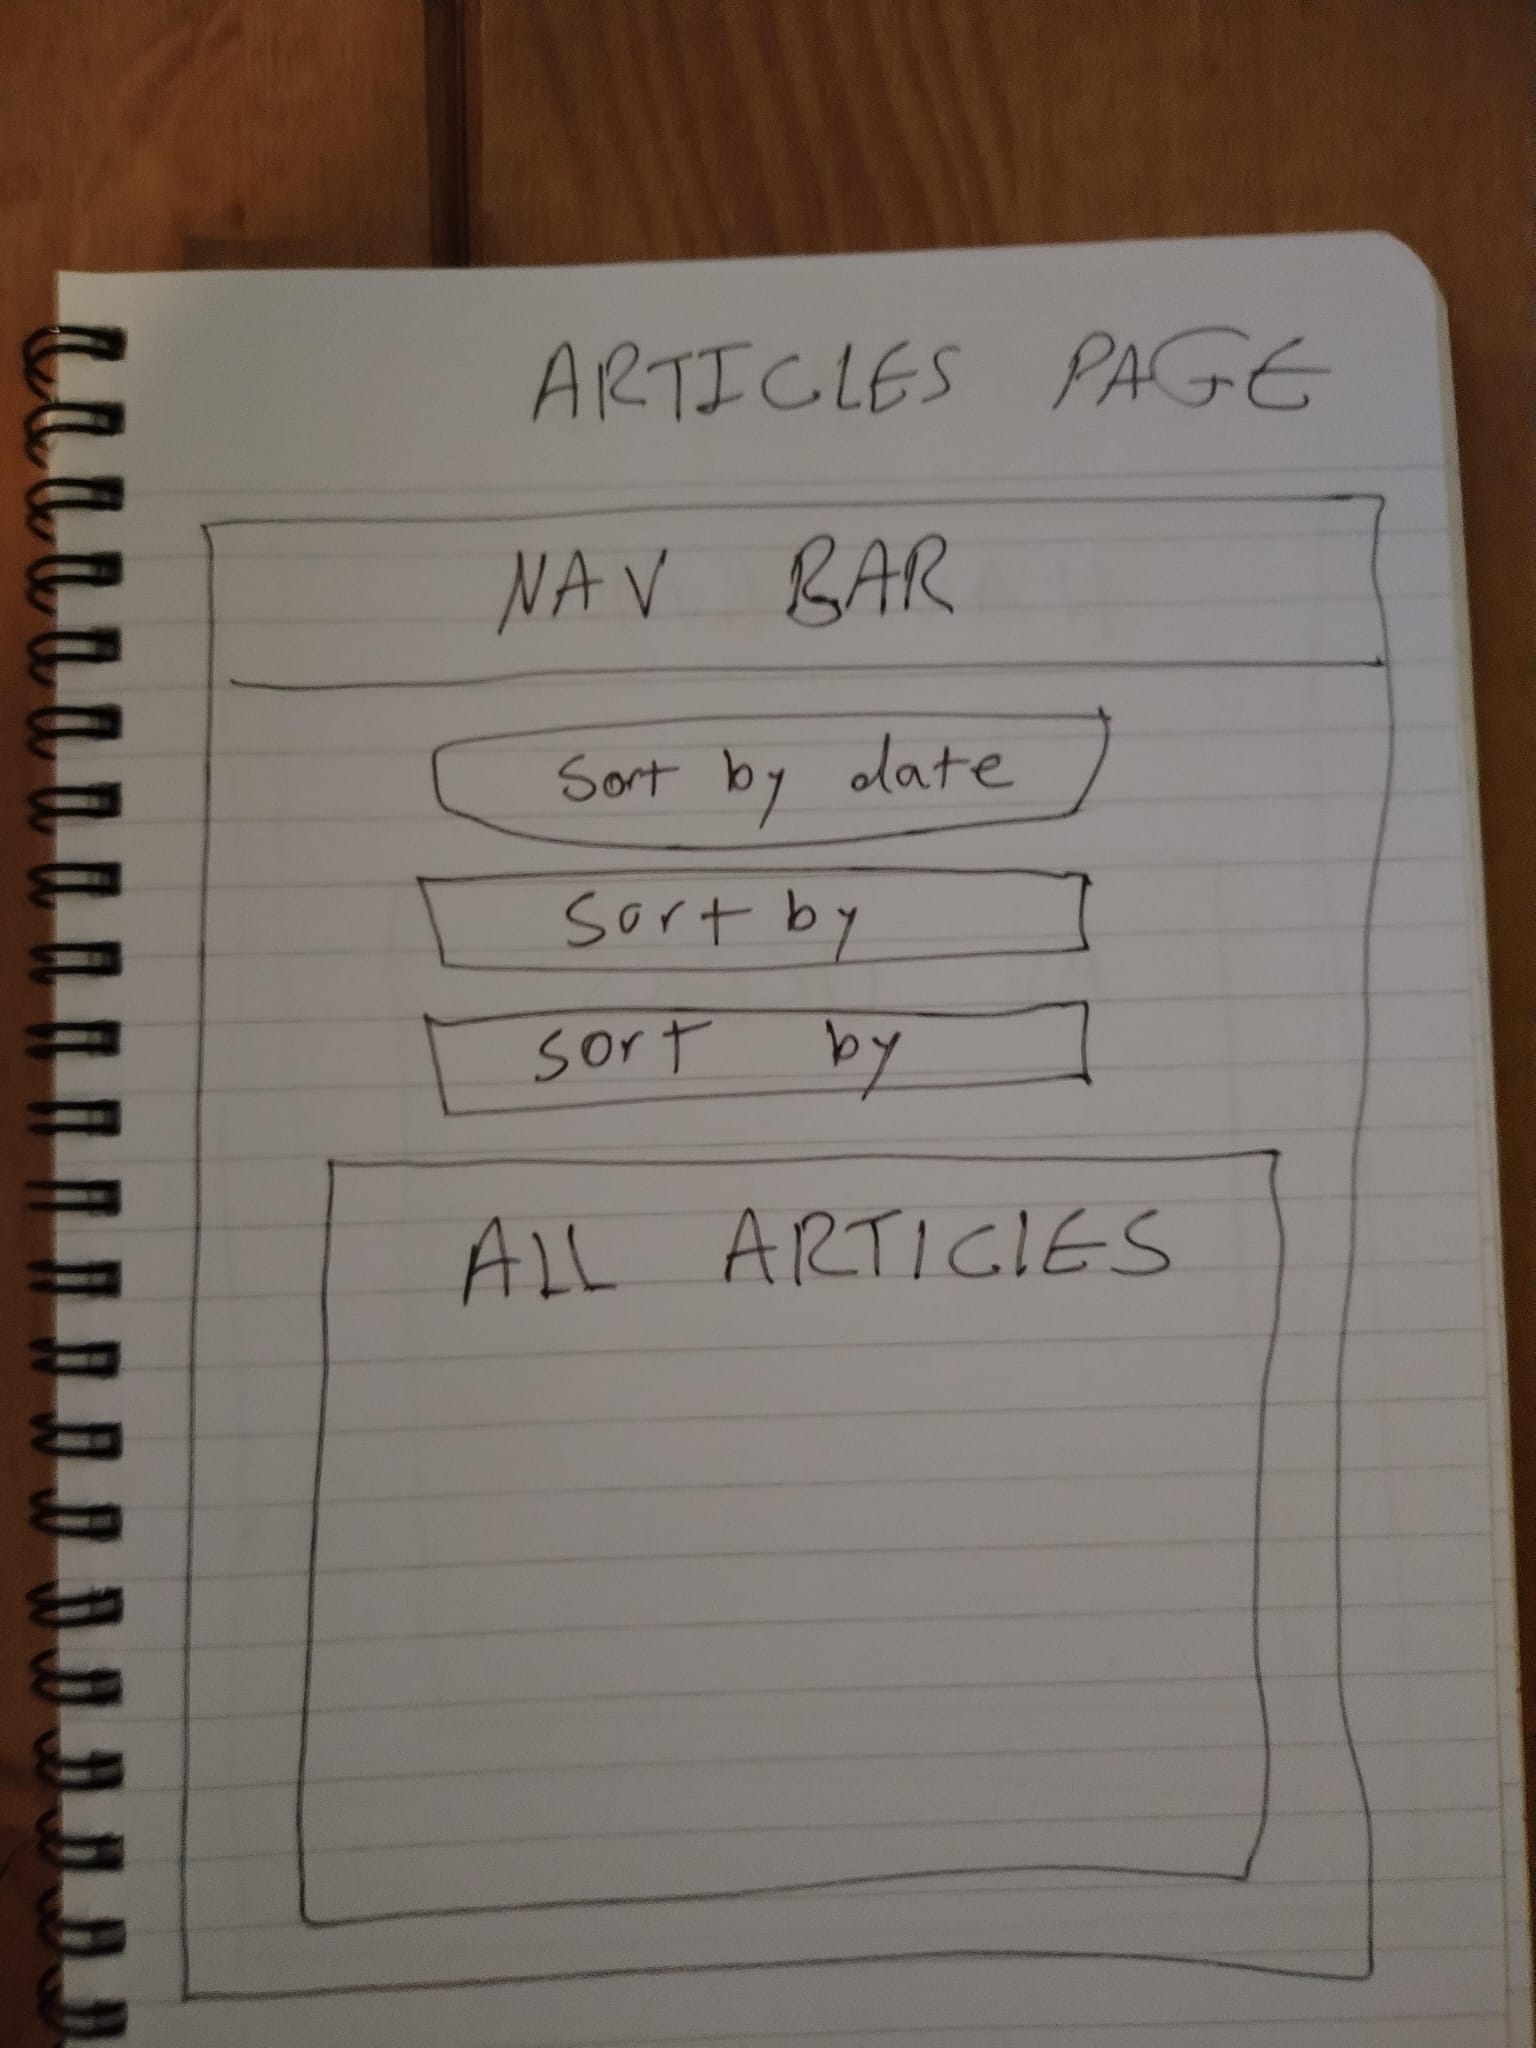 ARTICLES PAGE
NAV BAR
Sort by date
Sort by
sort by
ALL ARTICLES